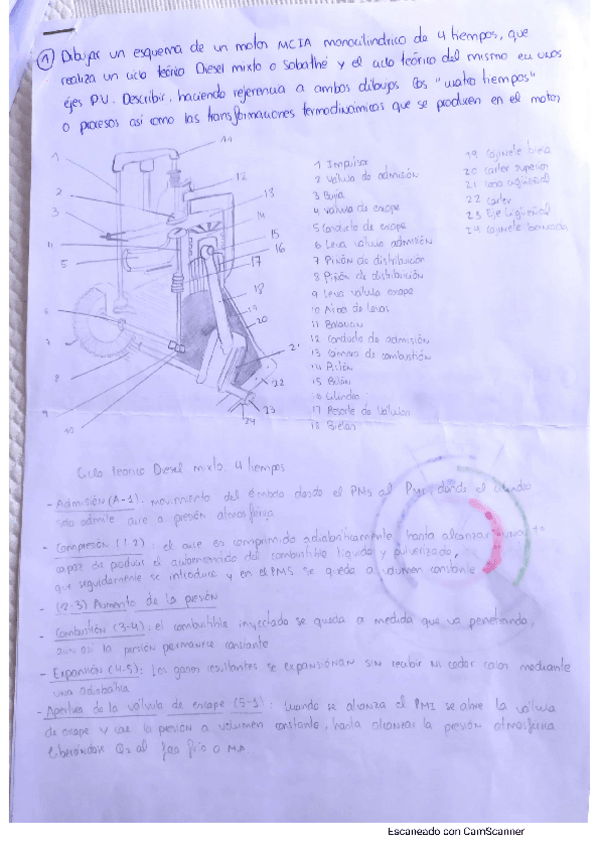 ① Dibujar un esquema de un motor MCIA monocilíndrico de 4 tiempos, que
realiza un ciclo teórico Diesel mixto o Sabathé y el ciclo teórico del mismo en unos
ejes PV. Describir, haciendo referencia a ambos dibujos los "cuatro tiempos"
o procesos así como las transformaciones termodinámicas que se producen en el motor
1
2
3
4
5
6
7
8
9
10
11
12
13
14
15
16
17
18
19
20
21
22
23
24
1 Impulsor
2 Valvula de admisión
3 Bujía
4 valvula de escape
5 Conducto de escape
6 Leva valvula admisión
7 Piñón de distribución
8 Piñón de distribución
9 Leva valvula escape
10 Arbol de Levas
11 Balancin
12 Conducto de admisión
13 cámara de combustión
14 Pistón
15 Bulón
16 Cilindro
17 Resorte de Valvulas
18 Bielas
19 Cojinete biela
20 carter superior
21 cigüeñal
22 carter
23 Eje Cigüeñal
24 Cojinete bancada
Ciclo teórico Diesel mixto. 4 tiempos
- Admisión (A-1): movimiento del émbolo desde el PMS al PMI, donde el cilindro
solo admite aire a presión atmosférica
- Compresión (1-2): el aire es comprimido adiabaticamente hasta alcanzar una
capaz de producir el autoencendido del combustible líquido y pulverizado,
que seguidamente se introduce y en el PMS se quema a volumen constante
- (2-3) Aumento de la presión
- Combustión (3-4): el combustible inyectado se quema a medida que va penetrando,
aún así la presión permanece constante
- Expansión (4-5): Los gases resultantes se expansionan sin recibir ni ceder calor mediante
una adiabática
- Apertura de la válvula de escape (5-1): Cuando se alcanza el PMI se abre la válvula
de escape y cae la presión a volumen constante, hasta alcanzar la presión atmosférica
liberándose Q2 al foco frío o MA
Escaneado con CamScanner